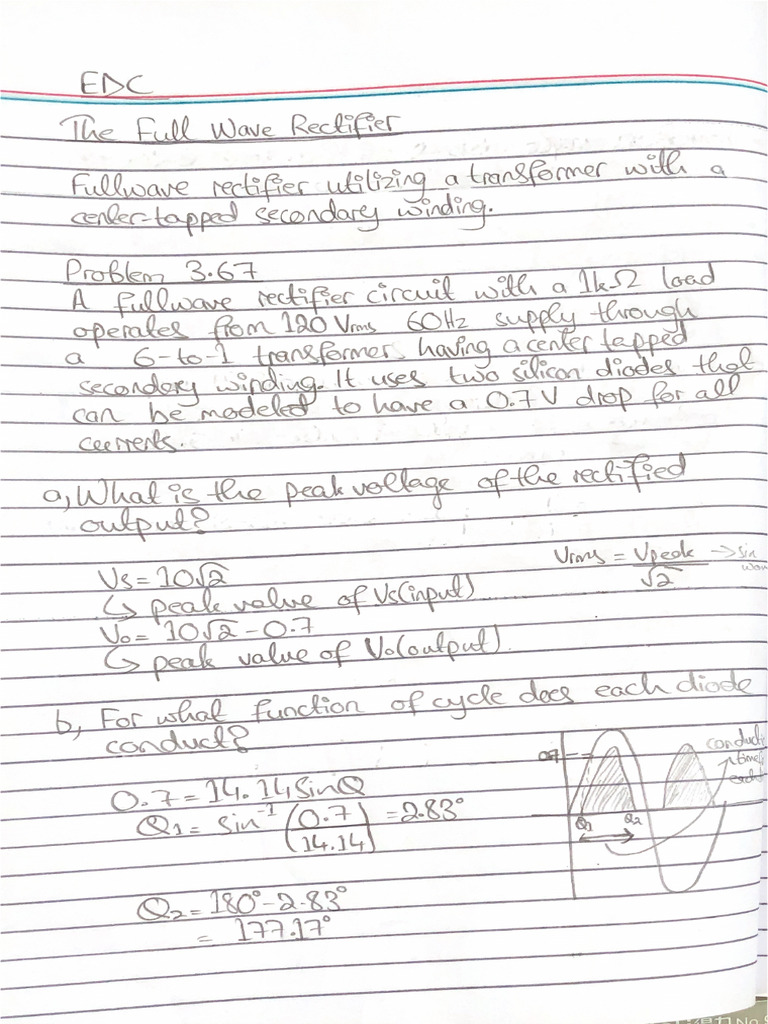 EDC
The Full Wave Rectifier
Fullwave rectifier utilizing a transformer with a
center-tapped secondary winding.
Problem 3.67
A fullwave rectifier circuit with a 1kΩ load
operates from 120 Vrms 60Hz supply through
a 6-to-1 transformers having a center tapped
secondary winding. It uses two silicon diodes that
can be modeled to have a 0.7 V drop for all
currents.
a, What is the peak voltage of the rectified
output?
Vrms = Vpeak/√2 → sin
Vs = 10√2
↳ peak value of Vs(input)
Vo = 10√2 - 0.7
↳ peak value of Vo(output)
b, For what function of cycle does each diode
conduct?
0.7
Q1
Q2
0.7 = 14.14 sinQ
Q1 = sin⁻¹ (0.7/14.14) = 2.83°
Q2 = 180° - 2.83°
= 177.17°